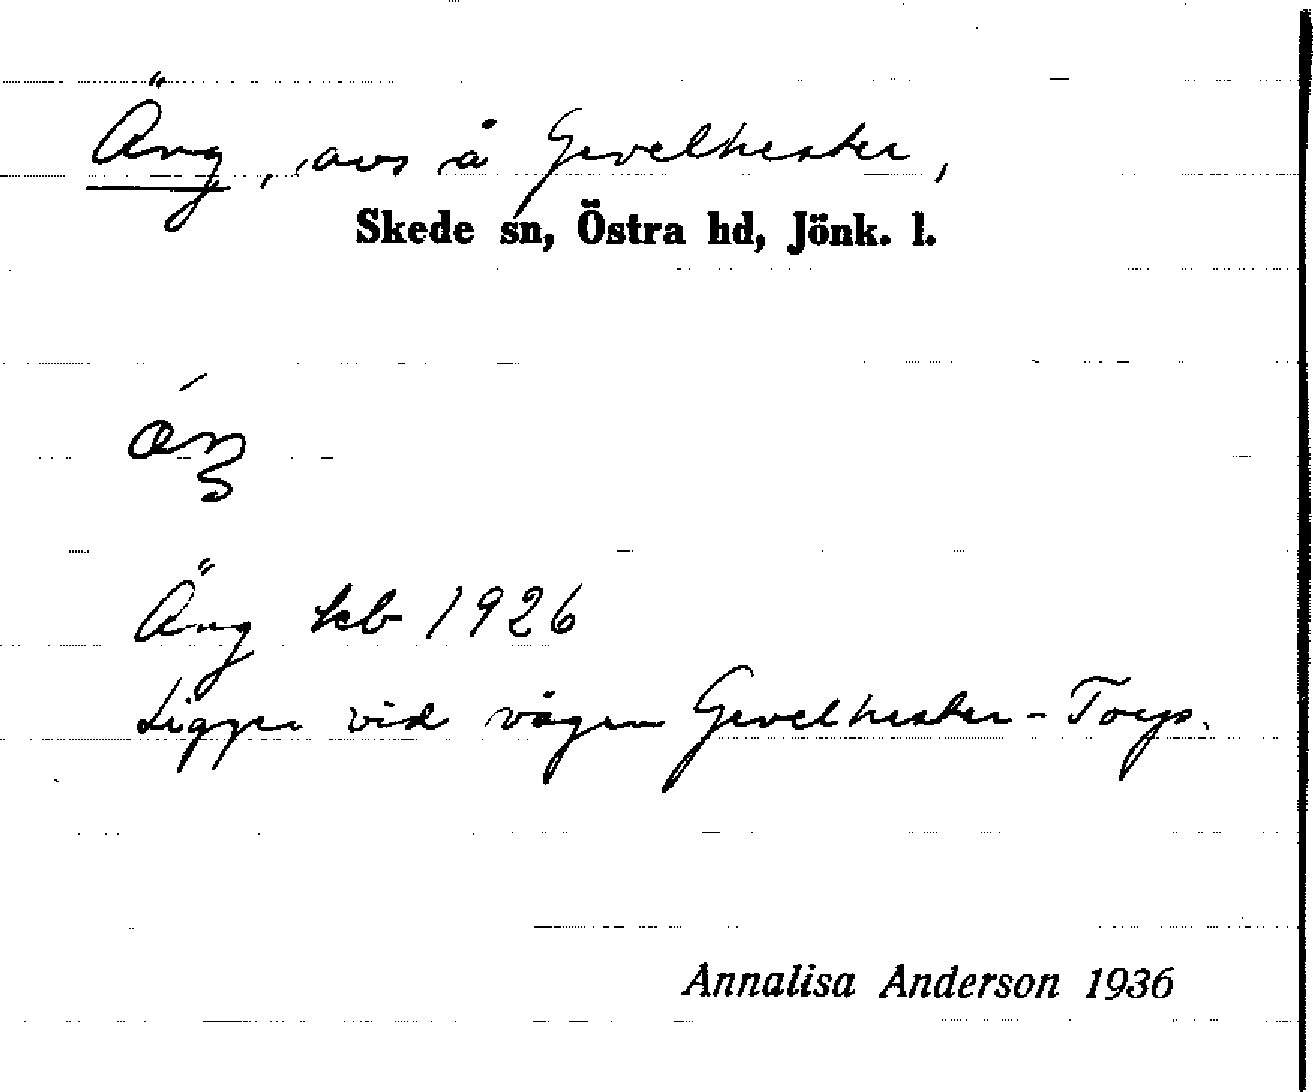 Äng, avs å Gevelhester,
Skede sn, Östra hd, Jönk. l.
äŋ
Äng kb 1926
Ligger vid vägen Gevelhester-Torp.
Annalisa Anderson 1936